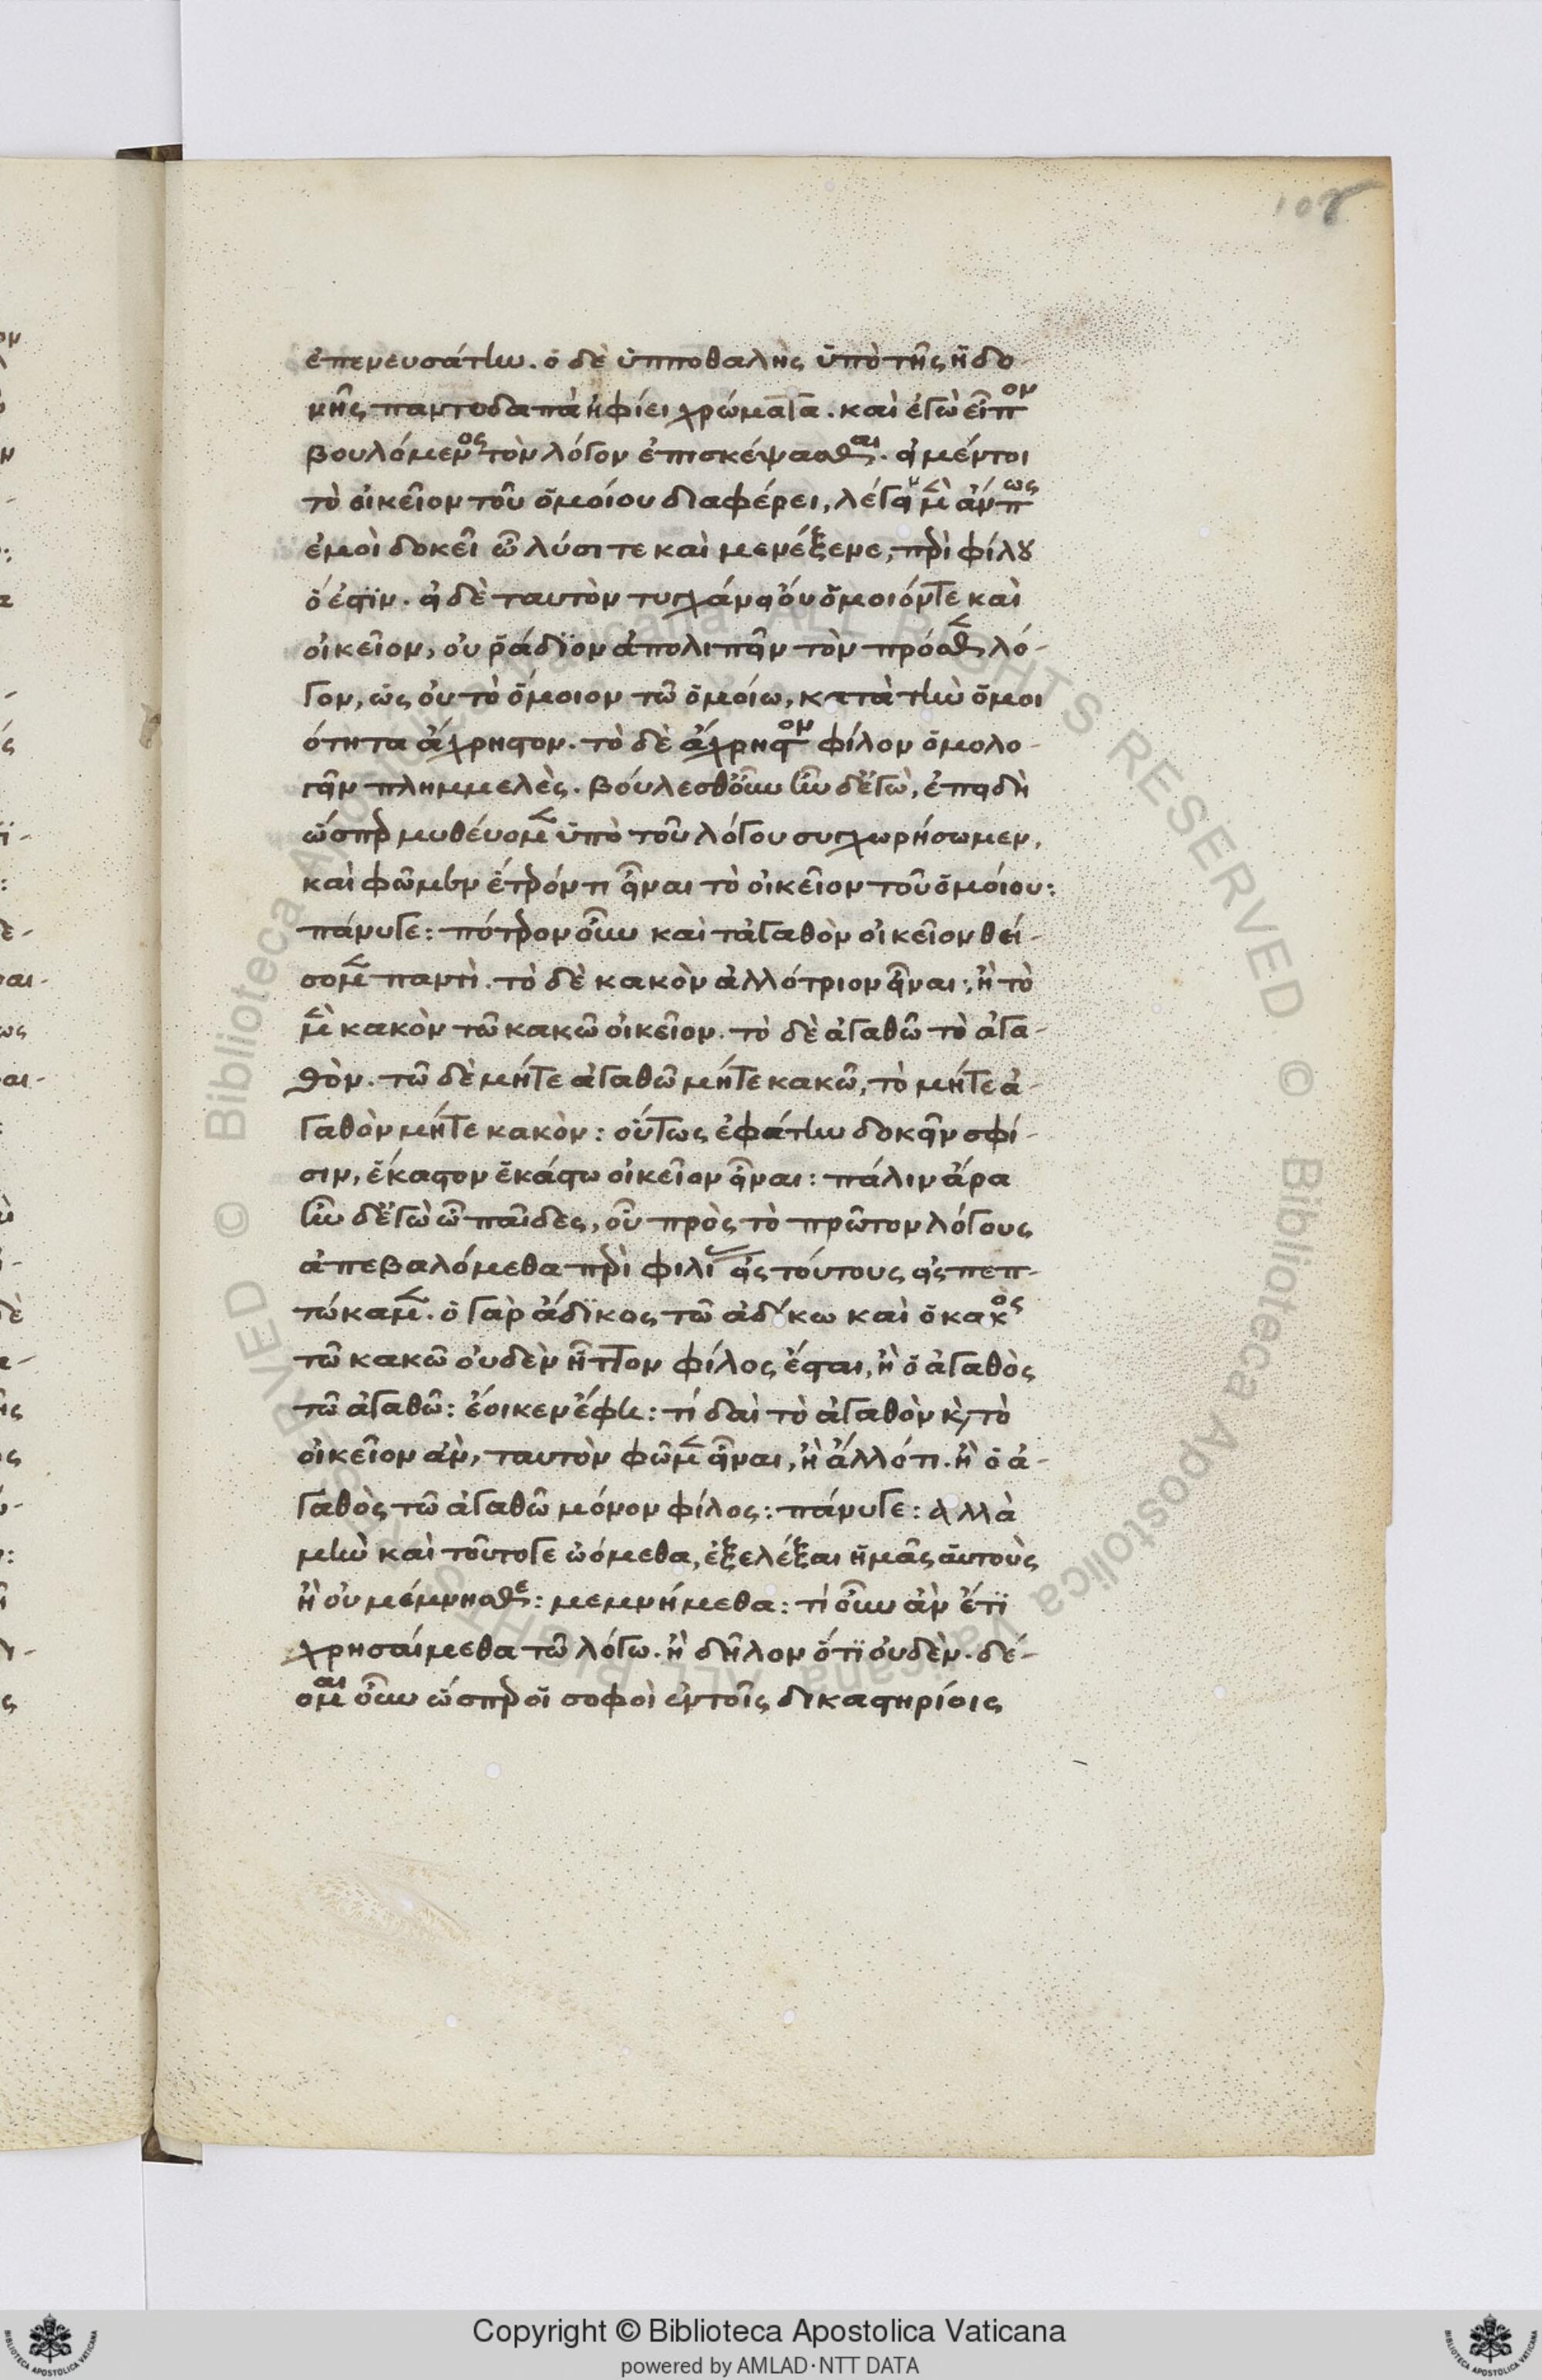 108
ἐπενευσάτην. ὁ δὲ ἱπποθαλὴς ὑπὸ τῆς ἡδο-
νῆς παντοδαπὰ ἠφίει χρώματα. καὶ ἐγὼ εἶπον
βουλόμενος τὸν λόγον ἐπισκέψασθαι. εἰ μέντοι
τὸ οἰκεῖον τοῦ ὁμοίου διαφέρει, λέγειν μὲν ἄν πως
ἐμοὶ δοκεῖ ὦ λύσι τε καὶ μενέξενε, περὶ φίλου
ὅ ἐστϊν. εἰ δὲ ταυτὸν τυγχάνει ὂν ὅμοιόν τε καὶ
οἰκεῖον, οὐ ῥάδϊον ἀπολιπεῖν τὸν πρόσθεν λό-
γον, ὡς οὐ τὸ ὅμοιον τῶ ὁμοίω, κατὰ τὴν ὁμοι
ότητα ἄχρηστον. τὸ δὲ ἄχρηστον φίλον ὁμολο-
γεῖν πλημμελὲς. βούλεσθ’ οὖν ἦν δ’ ἐγὼ, ἐπειδὴ
ὥσπερ μυθέυομεν ὑπὸ τοῦ λόγου συγχωρήσωμεν,
καὶ φῶμεν ἕτερόν τι εἶναι τὸ οἰκεῖον τοῦ ὁμοίου:
πάνυγε: πότερον οὖν καὶ τἀγαθὸν οἰκεῖον θεί-
σομεν παντὶ. τὸ δὲ κακὸν ἀλλότριον εἶναι; ἢ τὸ
μὲν κακὸν τῶ κακῶ οἰκεῖον. τὸ δὲ ἀγαθῶ τὸ ἀγα-
θὸν. τῶ δὲ μήτε ἀγαθῶ μήτε κακῶ, τὸ μήτε ἀ-
γαθὸν μήτε κακὸν: οὕτως ἐφάτην δοκεῖν σφί-
σιν, ἕκαστον ἑκάστω οἰκεῖον εἶναι: πάλιν ἄρα
ἦν δ’ ἐγὼ ὦ παῖδες, οὓ πρὸς τὸ πρῶτον λόγους
ἀπεβαλόμεθα περὶ φιλίας εἰς τούτους εἰς πεπ-
τώκαμεν. ὁ γὰρ ἄδϊκος τῶ ἀδίκω καὶ ὁ κακὸς
τῶ κακῶ οὐδὲν ἧττον φίλος ἔσται, ἢ ὁ ἀγαθὸς
τῶ ἀγαθῶ: ἔοικεν ἔφη: τί δαὶ τὸ ἀγαθὸν καὶ τὸ
οἰκεῖον ἂν, ταυτὸν φῶμεν εἶναι, ἢ ἄλλό τι. ἢ ὁ ἀ-
γαθὸς τῶ ἀγαθῶ μόνον φίλος: πάνυγε: ἀλλὰ
μὴν καὶ τοῦτογε ὠόμεθα, ἐξελέξαι ἡμᾶς αὑτοὺς
ἢ οὐ μέμνησθε: μεμνήμεθα: τί οὖν ἂν ἔτϊ
χρησαίμεθα τῶ λόγω. ἢ δῆλον ὅτϊ οὐδὲν. δέ-
ομαι οὖν ὥσπερ οἱ σοφοὶ ἐν τοῖς δικαστηρίοις
© Biblioteca Apostolica Vaticana ALL RIGHTS RESERVED
Copyright © Biblioteca Apostolica Vaticana
powered by AMLAD·NTT DATA